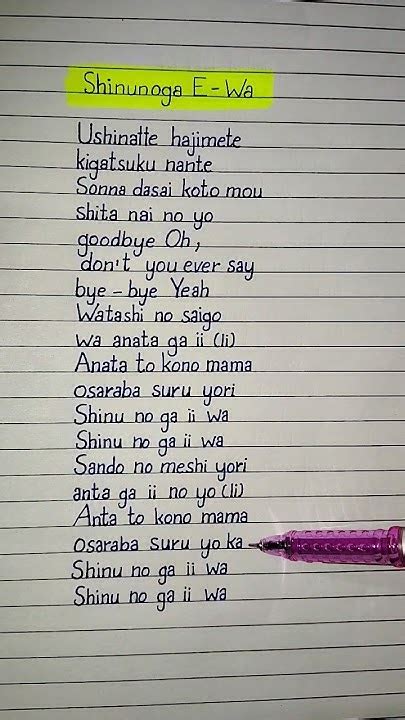 Shinunoga E-Wa
Ushinatte hajimete
kigatsuku nante
Sonna dasai koto mou
shita nai no yo
goodbye Oh,
don't you ever say
bye-bye Yeah
Watashi no saigo
wa anata ga ii (Ii)
Anata to kono mama
osaraba suru yori
Shinu no ga ii wa
Shinu no ga ii wa
Sando no meshi yori
anta ga ii no yo (Ii)
Anta to kono mama
osaraba suru yo ka
Shinu no ga ii wa
Shinu no ga ii wa